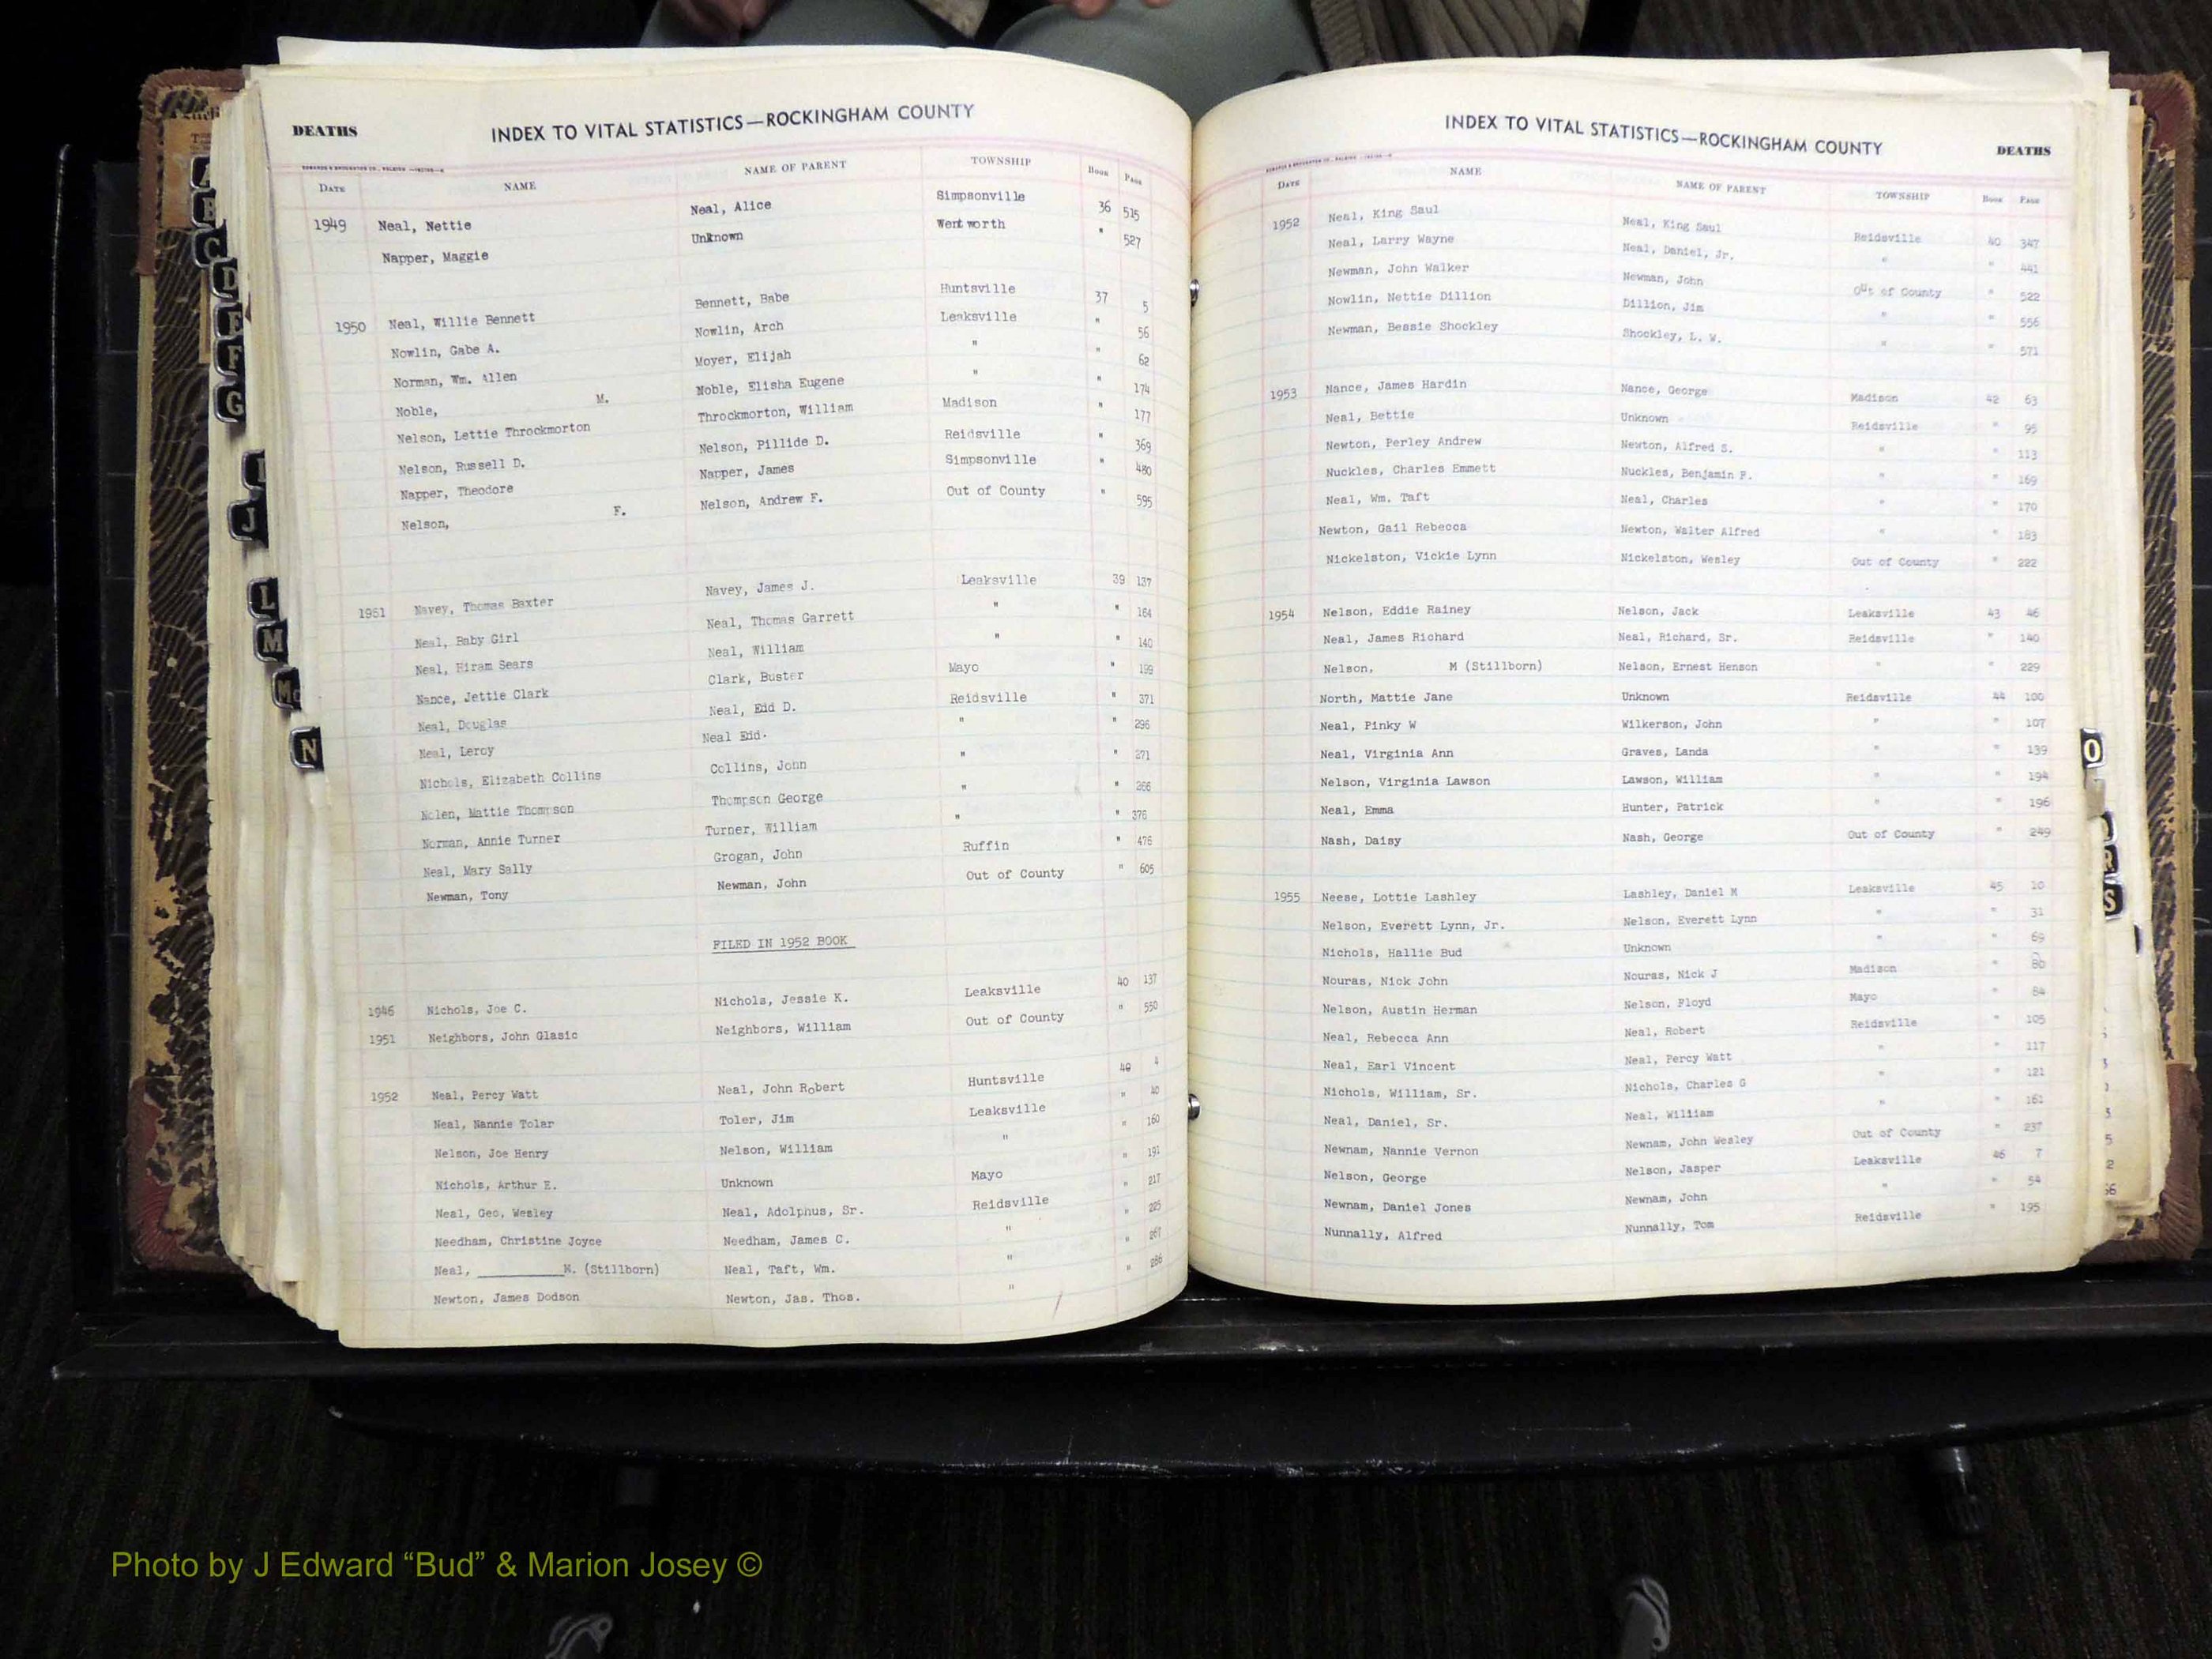 DEATHS
INDEX TO VITAL STATISTICS—ROCKINGHAM COUNTY
DATE NAME NAME OF PARENT TOWNSHIP Book Page
1949 Neal, Nettie Neal, Alice Simpsonville 36 515
Napper, Maggie Unknown Wentworth " 527
1950 Neal, Willie Bennett Bennett, Babe Huntsville 37 5
Nowlin, Gabe A. Nowlin, Arch Leaksville " 56
Norman, Wm. Allen Moyer, Elijah " " 62
Noble, M. Noble, Elisha Eugene " " 174
Nelson, Lettie Throckmorton Throckmorton, William Madison " 177
Nelson, Russell D. Nelson, Pillide D. Reidsville " 369
Napper, Theodore Napper, James Simpsonville " 480
Nelson, F. Nelson, Andrew F. Out of County " 595
1951 Navey, Thomas Baxter Navey, James J. Leaksville 39 137
Neal, Baby Girl Neal, Thomas Garrett " " 164
Neal, Hiram Sears Neal, William " " 140
Nance, Jettie Clark Clark, Buster Mayo " 199
Neal, Douglas Neal, Edd D. Reidsville " 371
Neal, Leroy Neal Edd. " " 296
Nichols, Elizabeth Collins Collins, John " " 271
Nolen, Mattie Thompson Thompson George " " 266
Norman, Annie Turner Turner, William " " 376
Neal, Mary Sally Grogan, John Ruffin " 476
Newman, Tony Newman, John Out of County " 605
FILED IN 1952 BOOK
1946 Nichols, Joe C. Nichols, Jessie K. Leaksville 40 137
1951 Neighbors, John Glasic Neighbors, William Out of County " 550
1952 Neal, Percy Watt Neal, John Robert Huntsville 40 4
Neal, Nannie Tolar Toler, Jim Leaksville " 40
Nelson, Joe Henry Nelson, William " " 160
Nichols, Arthur E. Unknown Mayo " 191
Neal, Geo, Wesley Neal, Adolphus, Sr. Reidsville " 217
Needham, Christine Joyce Needham, James C. " "
Neal, M. (Stillborn) Neal, Taft, Wm. " " 267
Newton, James Dodson Newton, Jas. Thos. " " 286
INDEX TO VITAL STATISTICS—ROCKINGHAM COUNTY
DEATHS
DATE NAME NAME OF PARENT TOWNSHIP Book Page
1952 Neal, King Saul Neal, King Saul Reidsville 40 347
Neal, Larry Wayne Neal, Daniel, Jr. " " 441
Newman, John Walker Newman, John Out of County " 522
Nowlin, Nettie Dillion Dillion, Jim " " 556
Newman, Bessie Shockley Shockley, L. W. " " 571
1953 Nance, James Hardin Nance, George Madison 42 63
Neal, Bettie Unknown Reidsville " 95
Newton, Perley Andrew Newton, Alfred S. " " 113
Nuckles, Charles Emmett Nuckles, Benjamin F. " " 169
Neal, Wm. Taft Neal, Charles " " 170
Newton, Gail Rebecca Newton, Walter Alfred " " 183
Nickelston, Vickie Lynn Nickelston, Wesley Out of County " 222
1954 Nelson, Eddie Rainey Nelson, Jack Leaksville 43 46
Neal, James Richard Neal, Richard, Sr. Reidsville " 140
Nelson, M (Stillborn) Nelson, Ernest Henson " " 229
North, Mattie Jane Unknown Reidsville 44 100
Neal, Pinky W Wilkerson, John " " 107
Neal, Virginia Ann Graves, Landa " " 139
Nelson, Virginia Lawson Lawson, William " " 194
Neal, Emma Hunter, Patrick " " 196
Nash, Daisy Nash, George Out of County " 249
1955 Neese, Lottie Lashley Lashley, Daniel M Leaksville 45 10
Nelson, Everett Lynn, Jr. Nelson, Everett Lynn " " 31
Nichols, Hallie Bud Unknown " " 69
Nouras, Nick John Nouras, Nick J Madison " 80
Nelson, Austin Herman Nelson, Floyd Mayo " 84
Neal, Rebecca Ann Neal, Robert Reidsville " 105
Neal, Earl Vincent Neal, Percy Watt " " 117
Nichols, William, Sr. Nichols, Charles G " " 121
Neal, Daniel, Sr. Neal, William " " 161
Newnam, Nannie Vernon Newnam, John Wesley Out of County " 237
Nelson, George Nelson, Jasper Leaksville 46 7
Newnam, Daniel Jones Newnam, John " " 54
Nunnally, Alfred Nunnally, Tom Reidsville " 195
B
C
D
E
F
G
I
J
L
M
Mc
N
O
R
S
Photo by J Edward “Bud” & Marion Josey ©